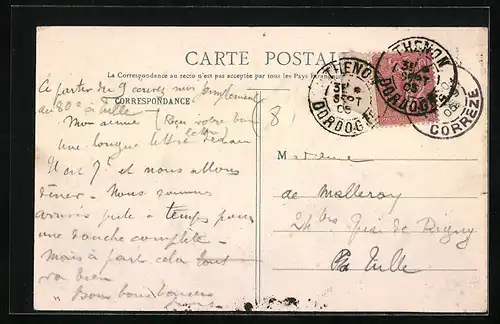 CARTE POSTALE
La Correspondance au recto n'est pas acceptée par tous les Pays étrangers
CORRESPONDANCE
THENON
31
SEPT
05
DORDOGNE
THENON
SEPT
05
DORDOGNE
CORREZE
A partir du 9 courez mon remplacement
au 80e à Tulle
(8
Mon aimée (Reçu votre bonne
lettre)
une longue lettre demain
Il est 7h et nous allons
dîner. Nous sommes
arrivés juste à temps pour
une douche complète.
Mais à part cela tout
va bien
Bons bons baisers
Madame
de Malleray
24 bis Quai de Rigny
Tulle